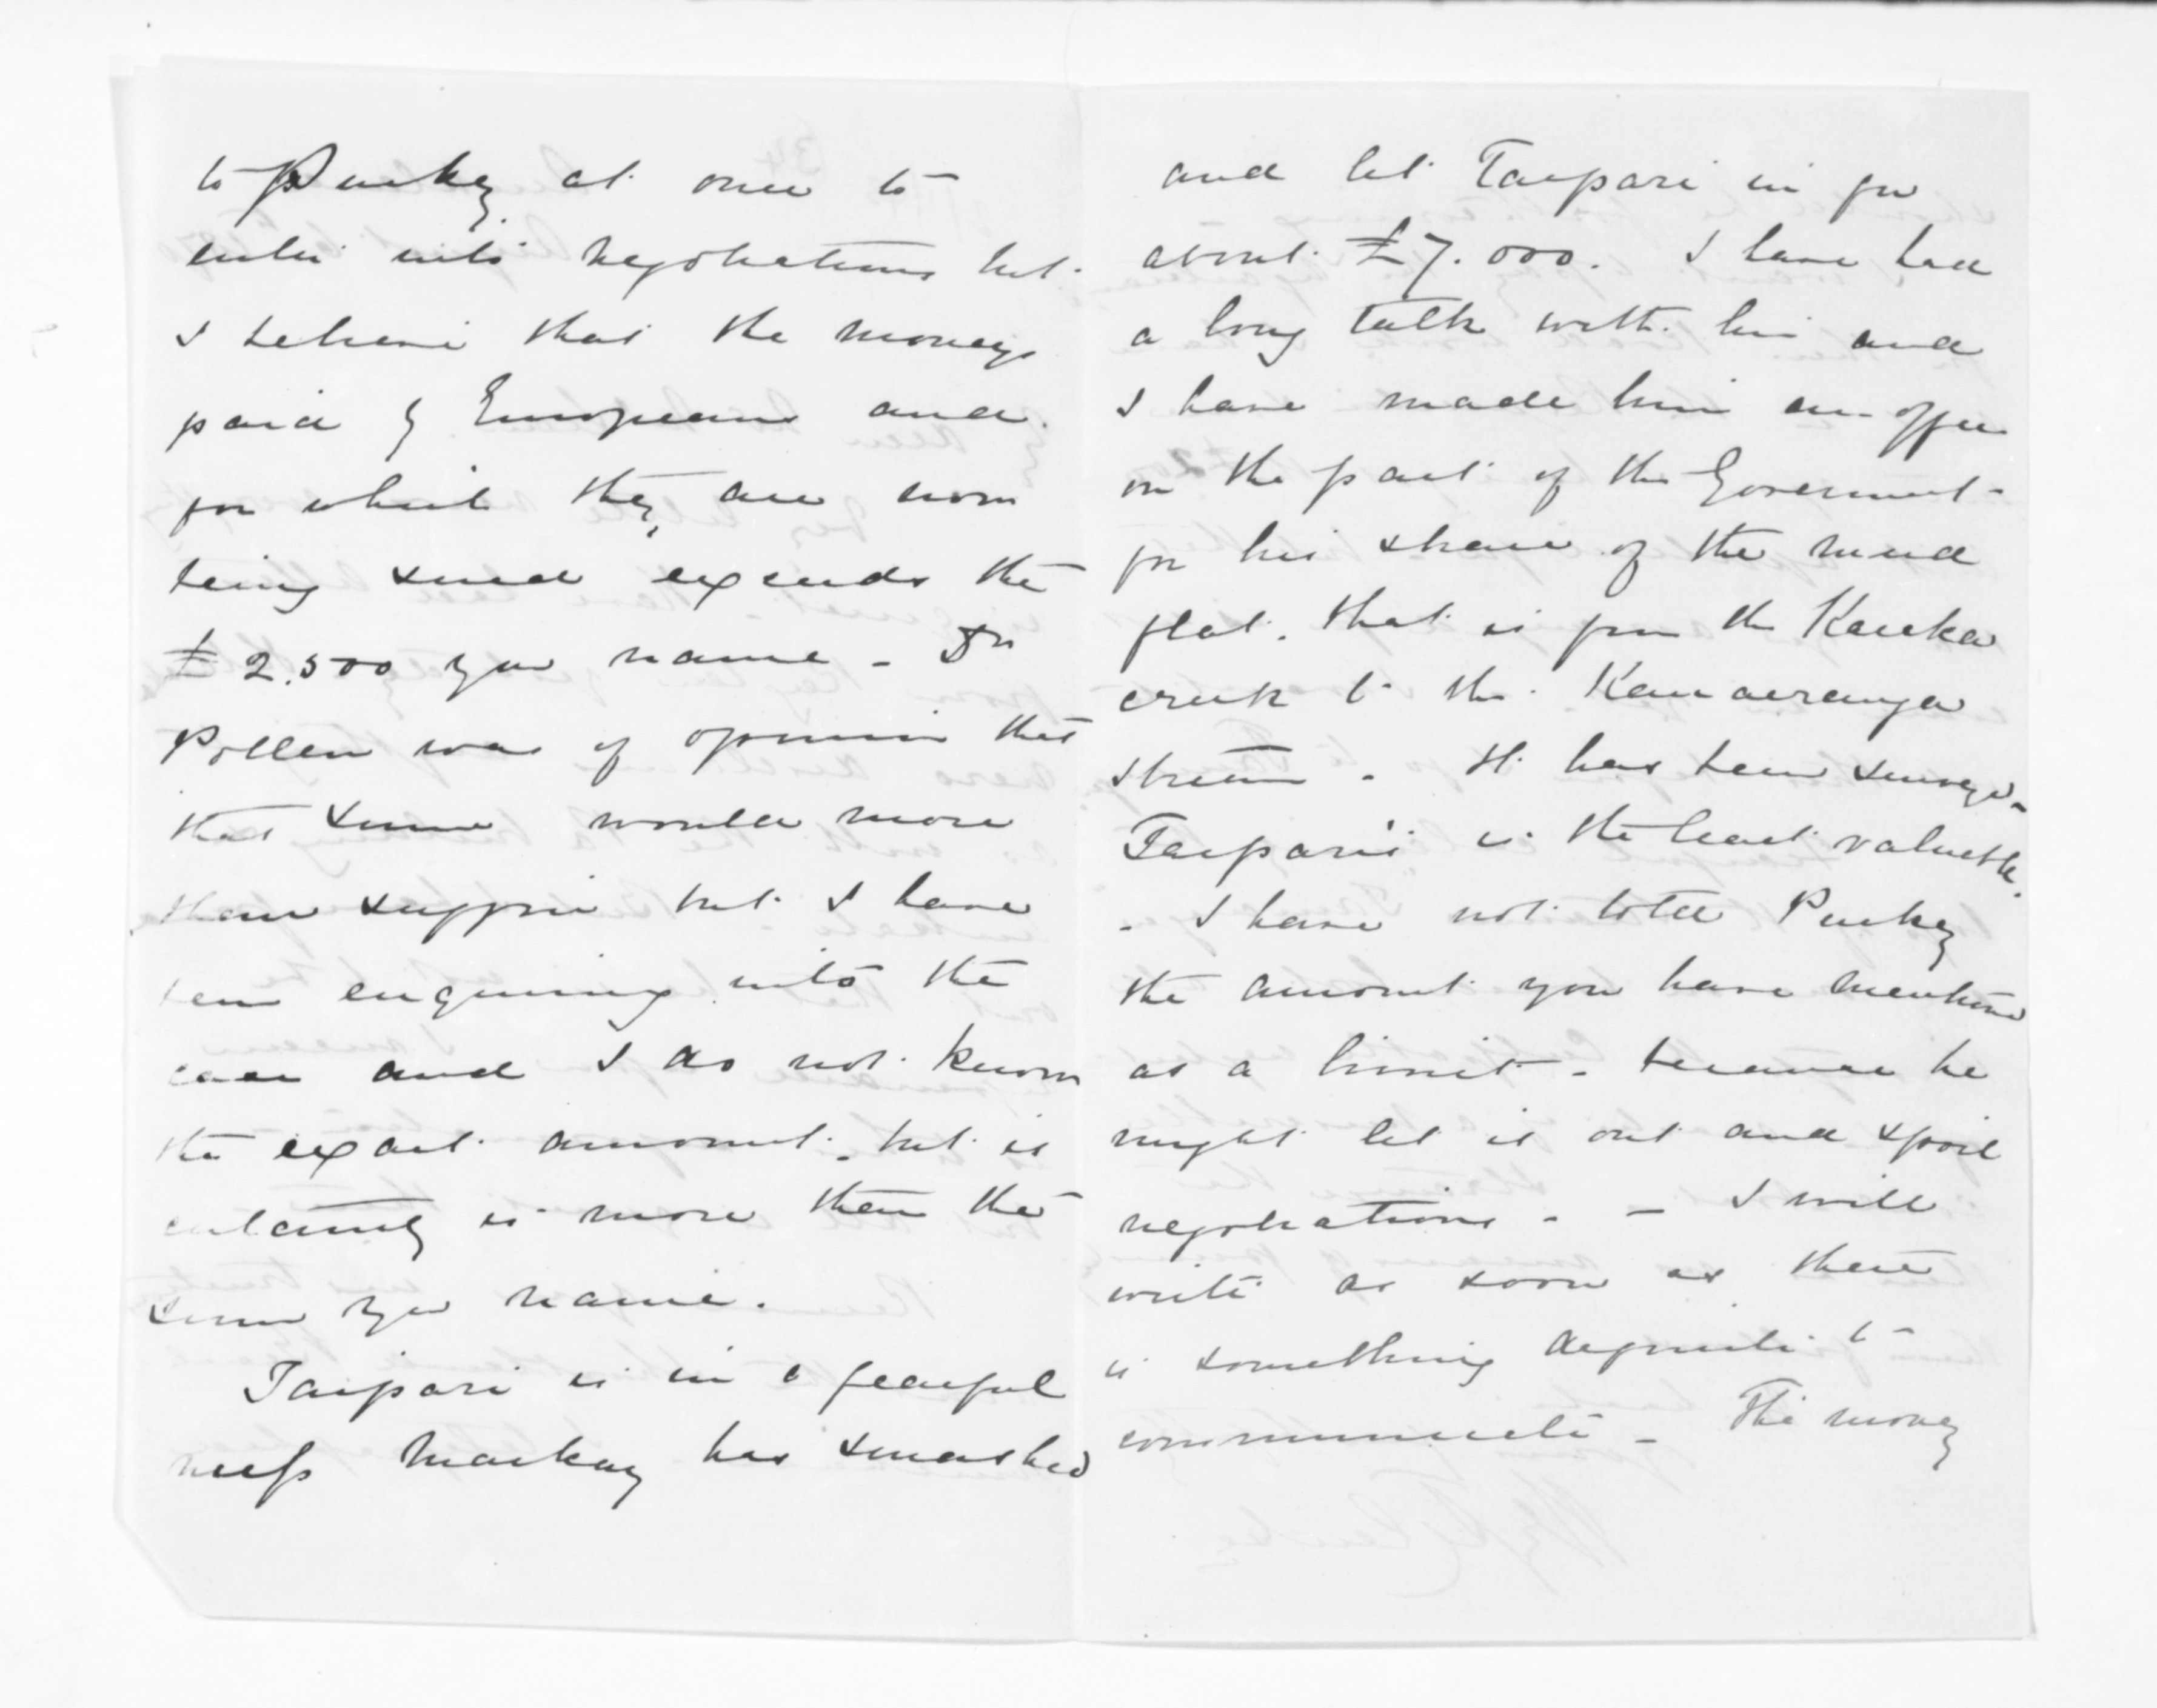 to Puckey at once to
enter into negotiations but
I believe that the moneys
paid by Europeans and
for which they are now
being sued exceeds the
£2,500 you name - Dr
Pollen was of opinion that
that sum would more
than suffice but I have
been enquiring into the
case and I do not know
the exact amount. but it
certainly is more than the
sum you name.
Taipari is in a fearful
mess Mackay has smashed
and let Taipari in for
about £7.000. I have had
a long talk with him and
I have made him an offer
on the part of the Government
for his share of the mud
flat. that is from the Karaka
creek to the Kauaeranga
stream. It has been surveyed
Taipari's is the least valuable.
- I have not told Puckey
the amount you have mentioned
as a limit - because he
might let it out and spoil
negotiations. - I will
write as soon as there
is something definite to
communicate - The money